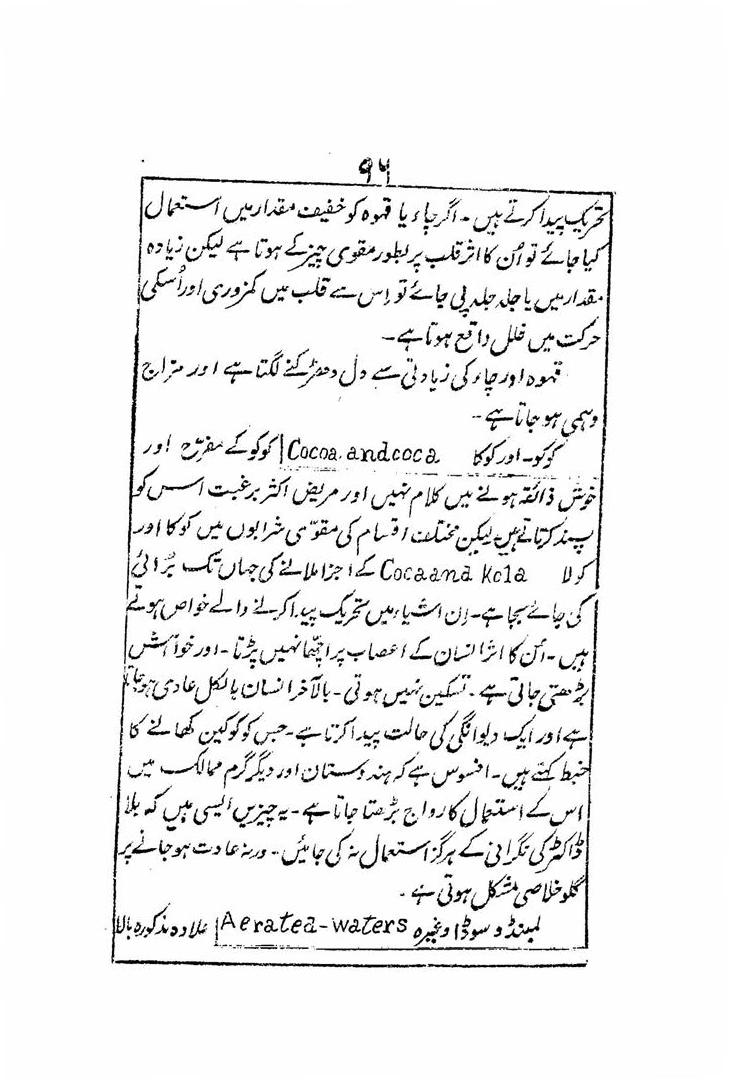 ۹۶
تحریک پیدا کرتے ہیں ۔ اگر چاء یا قہوہ کو خفیف مقدار میں استعمال
کیا جائے تو اُن کا اثر قلب پر بطور مقوی چیز کے ہوتا ہے لیکن زیادہ
مقدار میں یا جلد جلد پی جائے تو اِس سے قلب میں کمزوری اور اُسکی
حرکت میں خلل واقع ہوتا ہے ۔
قہوہ اور چاء کی زیادتی سے دل دھڑکنے لگتا ہے اور مزاج
وہمی ہو جاتا ہے ۔
کوکو ۔ اور کوکا Cocoa and coca کوکو کے مفرّح اور
خوش ذائقہ ہونے میں کلام نہیں اور مریض اکثر برغبت اس کو
پسند کرتا ہے ۔ لیکن مختلف اقسام کی مقوّی شرابوں میں کوکا اور
کولا Coca and Kola کے اجزا ملانے کی جہاں تک بُرائی
کی جائے بجا ہے ۔ اِن اشیاء میں تحریک پیدا کرنے والے خواص ہوتے
ہیں ۔ اُن کا اثر انسان کے اعصاب پر اچھا نہیں پڑتا ۔ اور خواہش
بڑھتی جاتی ہے ۔ تسکین نہیں ہوتی ۔ بالآخر انسان بالکل عادی ہو جاتا
ہے اور ایک دیوانگی کی حالت پیدا کرتا ہے ۔ جس کو کوکین کھانے کا
خبط کہتے ہیں ۔ افسوس ہے کہ ہندوستان اور دیگر گرم ممالک میں
اس کے استعمال کا رواج بڑھتا جاتا ہے ۔ یہ چیزیں ایسی ہیں کہ بلا
ڈاکٹر کی نگرانی کے ہرگز استعمال نہ کی جائیں ۔ ورنہ عادت ہو جانے پر
گلو خلاصی مشکل ہوتی ہے ۔
لمینڈ و سوڈا وغیرہ Aerated-waters علاوہ مذکورہ بالا